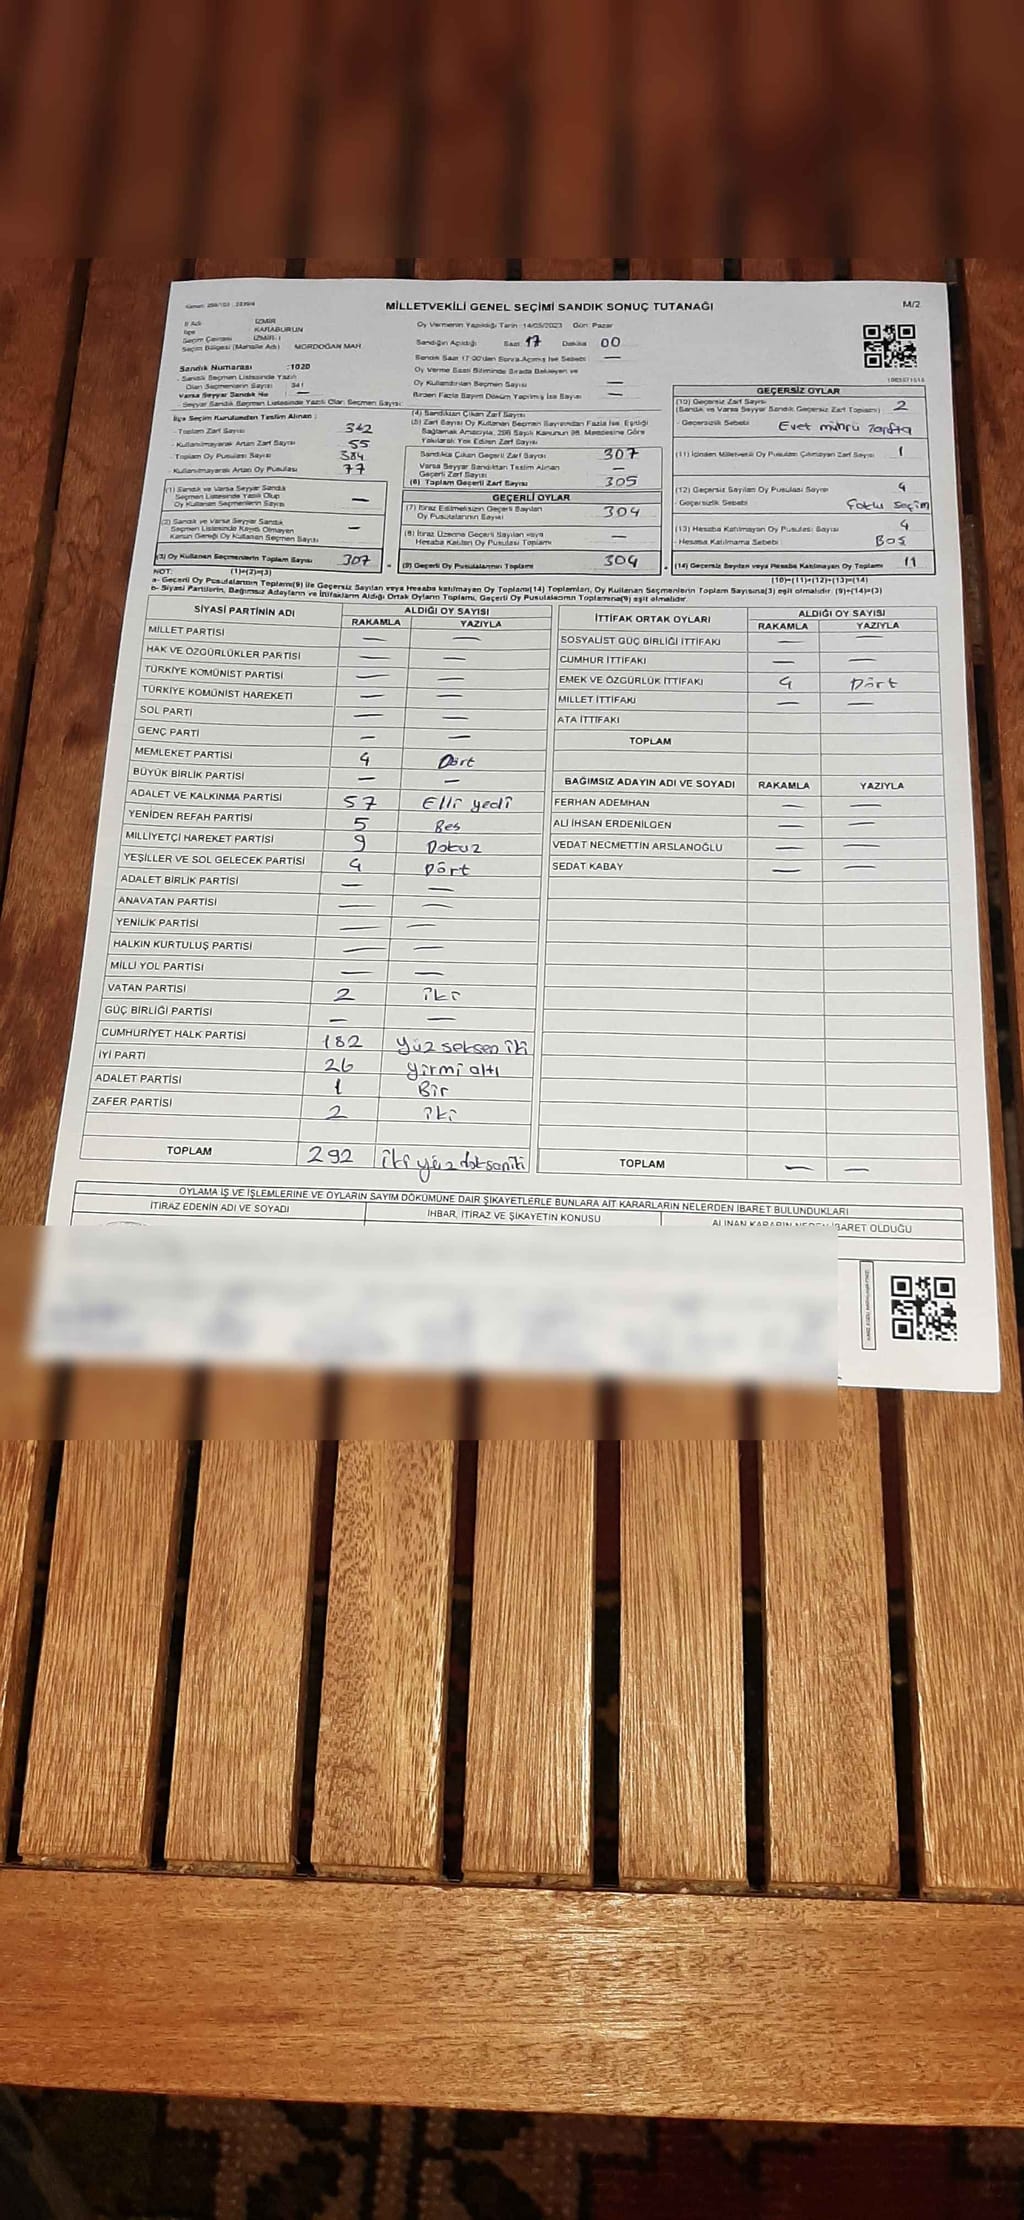 MİLLETVEKİLİ GENEL SEÇİMİ SANDIK SONUÇ TUTANAĞI
M/2
İl Adı İZMİR
İlçe KARABURUN
Seçim Çevresi İZMİR-1
Seçim Bölgesi (Mahalle Adı) MORDOĞAN MAH.
Oy Vermenin Yapıldığı Tarih :14/05/2023 Gün: Pazar
Sandığın Açıldığı Saat 17 Dakika 00
Sandık Saat 17:00'den Sonra Açılmış İse Sebebi —
Oy Verme Saati Bitiminde Sırada Bekleyen ve
Oy Kullandırılan Seçmen Sayısı —
Birden Fazla Sayım Döküm Yapılmış İse Sayısı —
Sandık Numarası :1020
- Sandık Seçmen Listesinde Yazılı
Olan Seçmenlerin Sayısı 341
Varsa Seyyar Sandık No : —
- Seyyar Sandık Seçmen Listesinde Yazılı Olan Seçmen Sayısı:
İlçe Seçim Kurulundan Teslim Alınan :
- Toplam Zarf Sayısı 362
- Kullanılmayarak Artan Zarf Sayısı 55
- Toplam Oy Pusulası Sayısı 384
- Kullanılmayarak Artan Oy Pusulası 77
(1) Sandık ve Varsa Seyyar Sandık
Seçmen Listesinde Yazılı Olup
Oy Kullanan Seçmenlerin Sayısı —
(2) Sandık ve Varsa Seyyar Sandık
Seçmen Listesinde Kaydı Olmayan
Kanun Gereği Oy Kullanan Seçmen Sayısı —
(3) Oy Kullanan Seçmenlerin Toplam Sayısı 307
(1)+(2)=(3)
(4) Sandıktan Çıkan Zarf Sayısı
(5) Zarf Sayısı Oy Kullanan Seçmen Sayısından Fazla İse, Eşitliği
Sağlamak Amacıyla, 298 Sayılı Kanunun 98. Maddesine Göre
Yakılarak Yok Edilen Zarf Sayısı
Sandıkta Çıkan Geçerli Zarf Sayısı 307
Varsa Seyyar Sandıktan Teslim Alınan
Geçerli Zarf Sayısı —
(6) Toplam Geçerli Zarf Sayısı 305
GEÇERLİ OYLAR
(7) İtiraz Edilmeksizin Geçerli Sayılan
Oy Pusulalarının Sayısı 304
(8) İtiraz Üzerine Geçerli Sayılan veya
Hesaba Katılan Oy Pusulası Toplamı —
(9) Geçerli Oy Pusulalarının Toplamı 304
GEÇERSİZ OYLAR
(10) Geçersiz Zarf Sayısı
(Sandık ve Varsa Seyyar Sandık Geçersiz Zarf Toplamı) 2
- Geçersizlik Sebebi Evet mührü zarfta
(11) İçinden Milletvekili Oy Pusulası Çıkmayan Zarf Sayısı 1
(12) Geçersiz Sayılan Oy Pusulası Sayısı 4
Geçersizlik Sebebi Çoklu seçim
(13) Hesaba Katılmayan Oy Pusulası Sayısı 4
- Hesaba Katılmama Sebebi Boş
(14) Geçersiz Sayılan veya Hesaba Katılmayan Oy Toplamı 11
(10)+(11)+(12)+(13)=(14)
NOT:
a- Geçerli Oy Pusulalarının Toplamı(9) ile Geçersiz Sayılan veya Hesaba katılmayan Oy Toplamı(14) Toplamları, Oy Kullanan Seçmenlerin Toplam Sayısına(3) eşit olmalıdır. (9)+(14)=(3)
b- Siyasi Partilerin, Bağımsız Adayların ve İttifakların Aldığı Ortak Oyların Toplamı, Geçerli Oy Pusulalarının Toplamına(9) eşit olmalıdır.
SİYASİ PARTİNİN ADI ALDIĞI OY SAYISI
RAKAMLA YAZIYLA
MİLLET PARTİSİ — —
HAK VE ÖZGÜRLÜKLER PARTİSİ — —
TÜRKİYE KOMÜNİST PARTİSİ — —
TÜRKİYE KOMÜNİST HAREKETİ — —
SOL PARTİ — —
GENÇ PARTİ — —
MEMLEKET PARTİSİ 4 Dört
BÜYÜK BİRLİK PARTİSİ — —
ADALET VE KALKINMA PARTİSİ 57 Elli yedi
YENİDEN REFAH PARTİSİ 5 Beş
MİLLİYETÇİ HAREKET PARTİSİ 9 Dokuz
YEŞİLLER VE SOL GELECEK PARTİSİ 4 Dört
ADALET BİRLİK PARTİSİ — —
ANAVATAN PARTİSİ — —
YENİLİK PARTİSİ — —
HALKIN KURTULUŞ PARTİSİ — —
MİLLİ YOL PARTİSİ — —
VATAN PARTİSİ 2 iki
GÜÇ BİRLİĞİ PARTİSİ — —
CUMHURİYET HALK PARTİSİ 182 yüz seksen iki
İYİ PARTİ 26 yirmi altı
ADALET PARTİSİ 1 Bir
ZAFER PARTİSİ 2 iki
TOPLAM 292 iki yüz doksan iki
İTTİFAK ORTAK OYLARI ALDIĞI OY SAYISI
RAKAMLA YAZIYLA
SOSYALİST GÜÇ BİRLİĞİ İTTİFAKI — —
CUMHUR İTTİFAKI — —
EMEK VE ÖZGÜRLÜK İTTİFAKI 4 Dört
MİLLET İTTİFAKI — —
ATA İTTİFAKI
TOPLAM
BAĞIMSIZ ADAYIN ADI VE SOYADI RAKAMLA YAZIYLA
FERHAN ADEMHAN — —
ALİ İHSAN ERDENİLGEN — —
VEDAT NECMETTİN ARSLANOĞLU — —
SEDAT KABAY — —
TOPLAM — —
OYLAMA İŞ VE İŞLEMLERİNE VE OYLARIN SAYIM DÖKÜMÜNE DAİR ŞİKAYETLERLE BUNLARA AİT KARARLARIN NELERDEN İBARET BULUNDUKLARI
İTİRAZ EDENİN ADI VE SOYADI İHBAR, İTİRAZ VE ŞİKAYETİN KONUSU ALINAN KARARIN NEDEN İBARET OLDUĞU